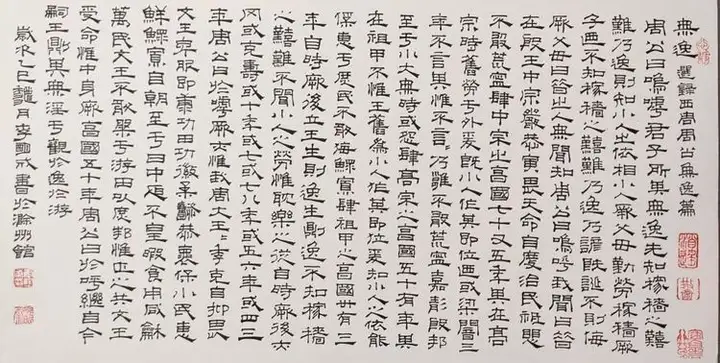 無逸 選録西周周公無逸篇
周公曰嗚嘑君子所其無逸先知稼穡之艱
難乃逸則知小人之依相小人厥父母勤勞稼穡厥
子乃不知稼穡之艱難乃逸乃諺既誕不則侮
厥父母曰昔之人無聞知周公曰嗚呼我聞曰昔
在殷王中宗嚴恭寅畏天命自度治民祗懼
不敢荒寧肆中宗之享國七十又五年其在高
宗時舊勞于外爰既小人作其即位乃或梁闇三
年不言其惟不言言乃雍不敢荒寧嘉靖殷邦
至于小大無時或怨肆高宗之享國五十有年其
在祖甲不惟王舊為小人作其即位爰知小人之依能
保惠于庶民不敢侮鰥寡肆祖甲之享國卅有三
年自時厥後立王生則逸生則逸不知稼穡
之艱難不聞小人之勞惟耽樂之從自時厥後亦
罔或克壽或十年或七或七八年或五六年或四三
年周公曰於嘑厥亦惟我周大王王季克自抑畏
文王卑服即康功田功徽柔懿恭懷保小民惠
鮮鰥寡自朝至于日中昃不皇暇食用咸龢
萬民文王不敢槃于游田以庶邦惟正之共文王
受命惟中身厥享國五十年周公曰於呼繼自今
嗣王則其無淫于觀於逸於游
歲次乙巳月李戒書於滁州館